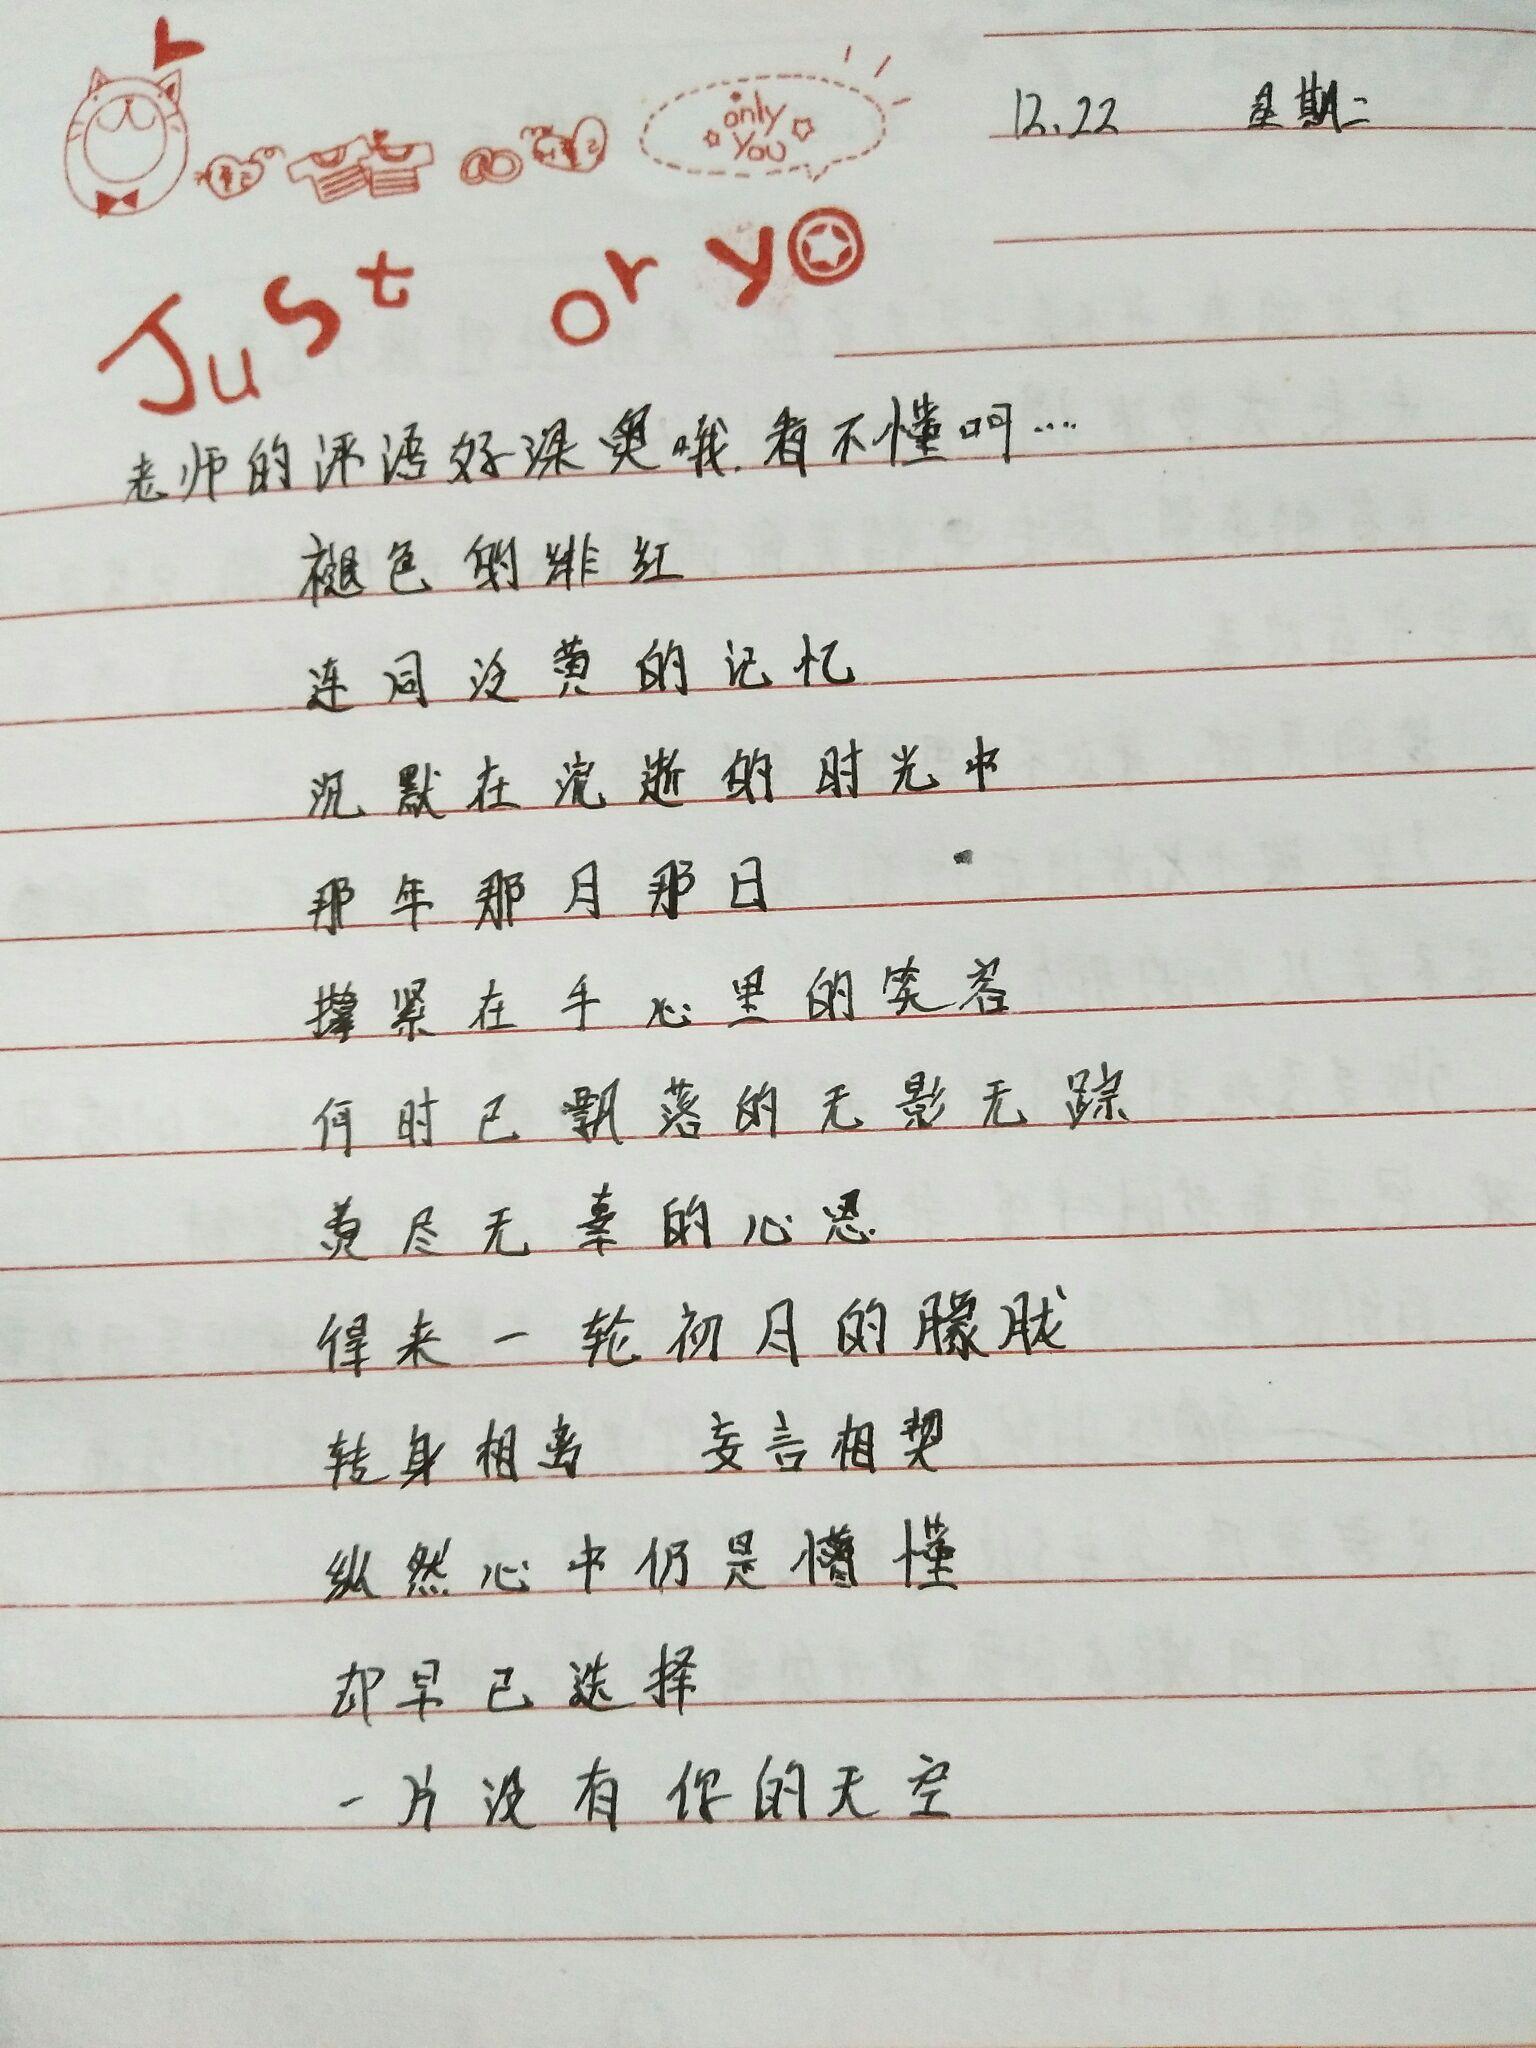 only
you
12.22 星期二
Just or yo
老师的评语好深奥哦.看不懂啊....
褪色的绯红
连同泛黄的记忆
沉默在流逝的时光中
那年那月那日
攥紧在手心里的笑容
何时已飘落的无影无踪
费尽无辜的心思
得来一轮初月的朦胧
转身相离 妄言相契
纵然心中仍是懵懂
却早已选择
一片没有你的天空